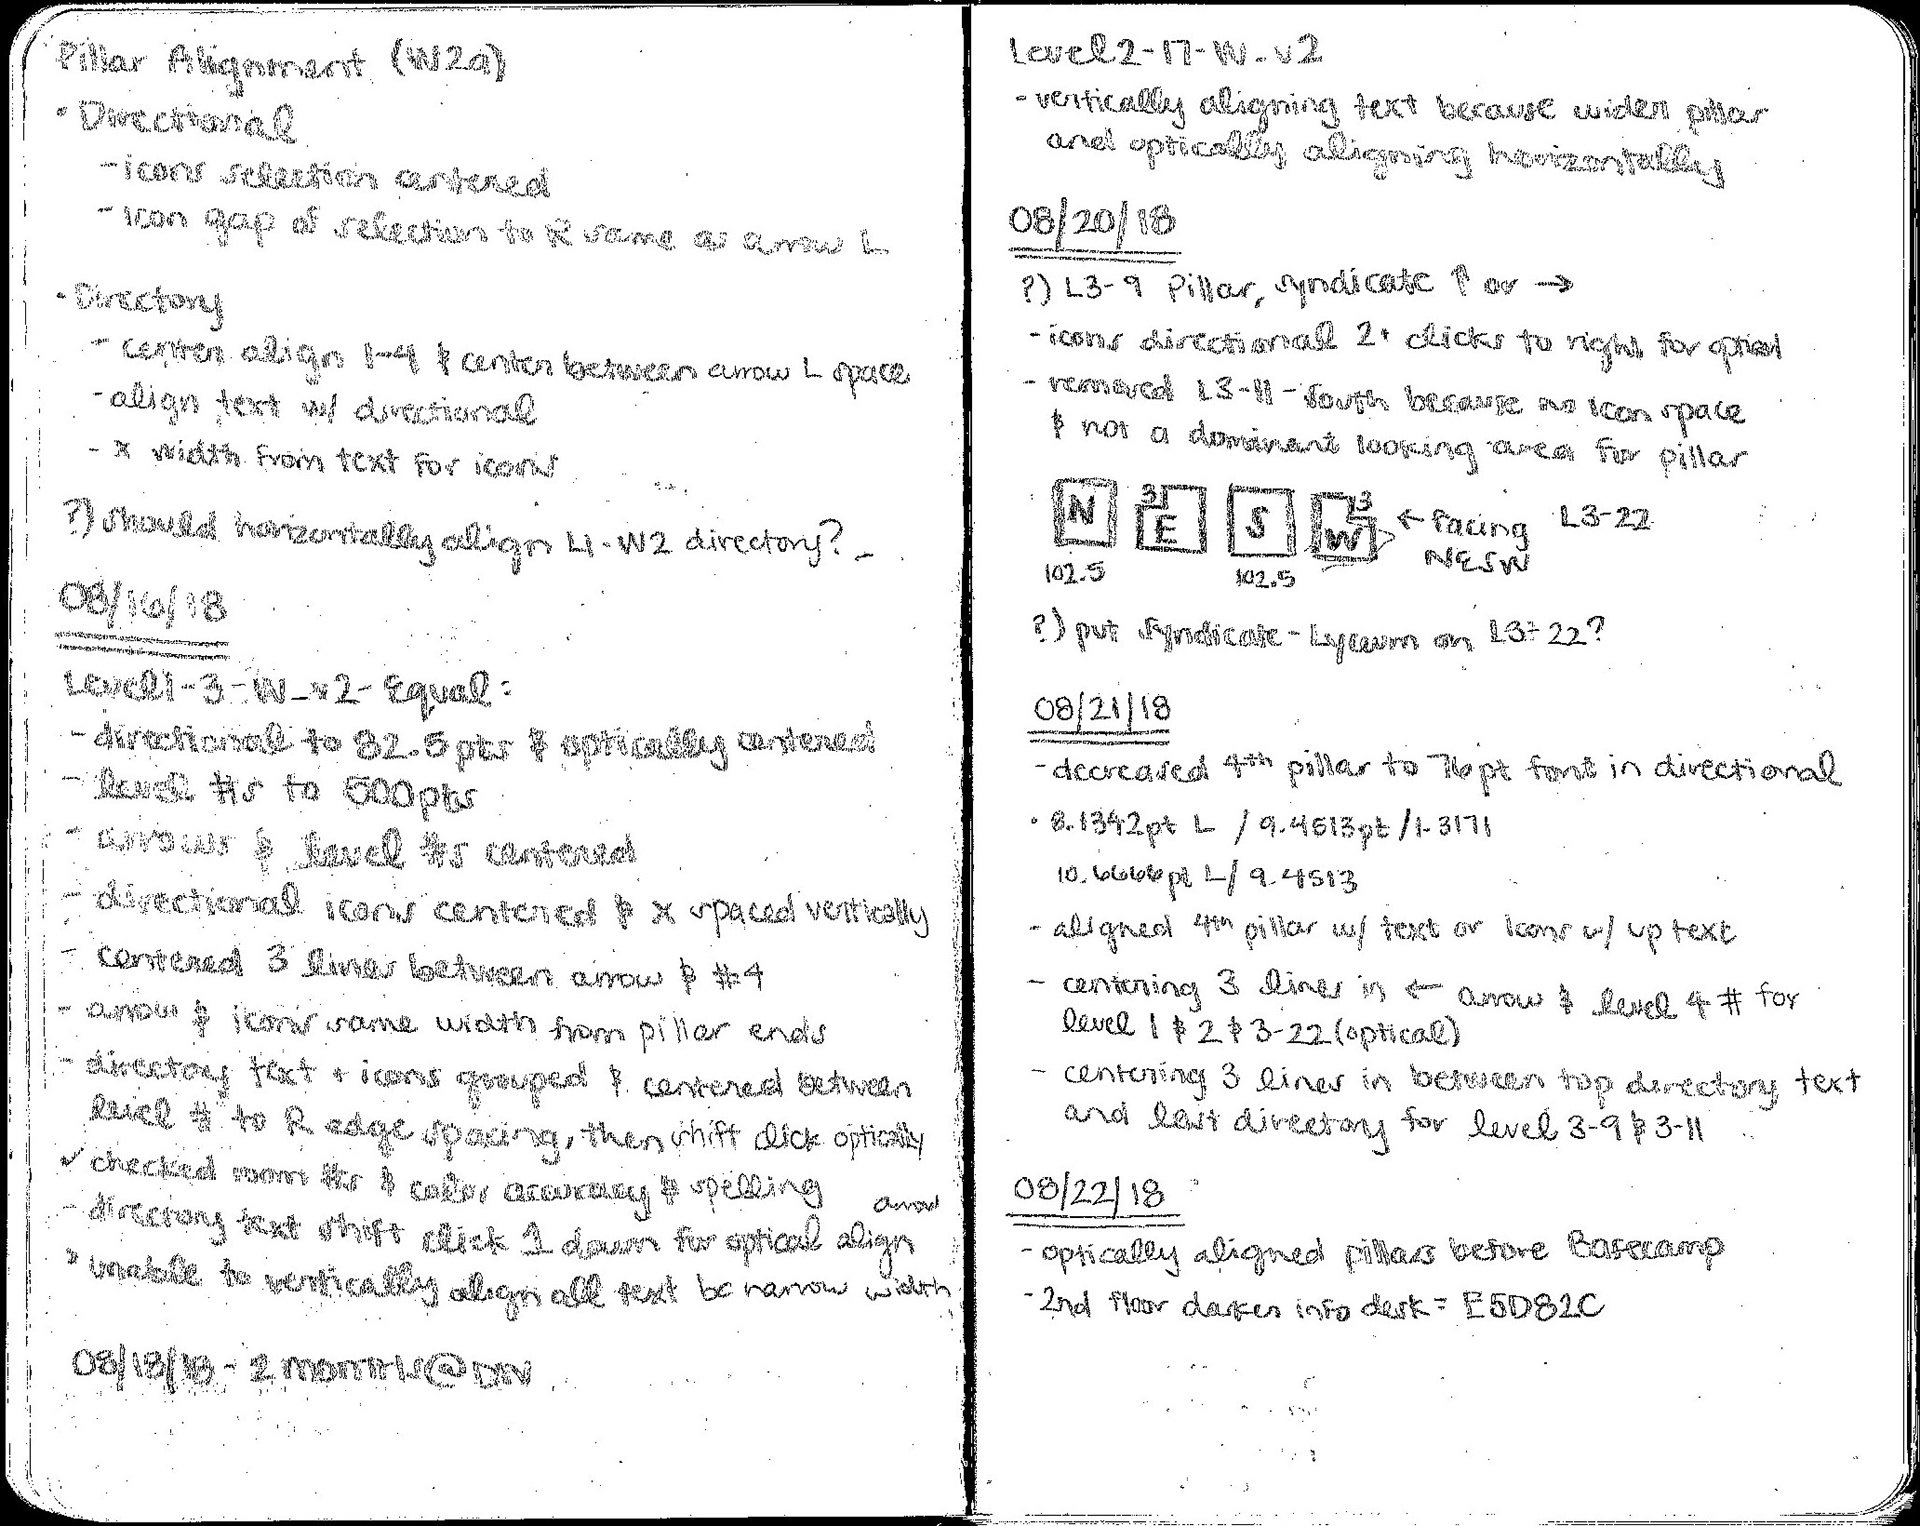 Pillar Alignment (W2a)
• Directional
- icons selection centered
- icon gap of selection to R same as arrow L
• Directory
- center align 1-4 & center between arrow L space
- align text w/ directional
- x width from text for icons
?) should horizontally align L1-W2 directory?
08/16/18
Level1-3-W_v2-Equal:
- directional to 82.5pts & optically centered
- level #s to 500pts
- arrows & level #s centered
- directional icons centered & x spaced vertically
- centered 3 lines between arrow & #4
- arrow & icons same width from pillar ends
- directory text + icons grouped & centered between
level # to R edge spacing, then shift click optically
✓ checked room #s & color accuracy & spelling
- directory text shift click 1 down for optical arrow align
• unable to vertically align all text bc narrow width
08/18/18 - 2 months @
Level2-17-W_v2
- vertically aligning text because wider pillar
and optically aligning horizontally
08/20/18
?) L3-9 Pillar, Syndicate ↑ or →
- icons directional 2+ clicks to right for optical
- removed L3-11-South because no icon space
& not a dominant looking area for pillar
N 31 E S 13 W ← facing NESW L3-22
102.5 102.5
?) put Syndicate-Lyceum on L3-22?
08/21/18
- decreased 4th pillar to 76pt font in directional
• 8.1342pt L / 9.4513pt / 1.3171
10.6666pt L / 9.4513
- aligned 4th pillar w/ text or icons w/ up text
- centering 3 lines in ← arrow & level 4 # for
level 1 & 2 & 3-22 (optical)
- centering 3 lines in between top directory text
and last directory for level 3-9 & 3-11
08/22/18
- optically aligned pillars before Basecamp
- 2nd floor darker info desk = E5D82C